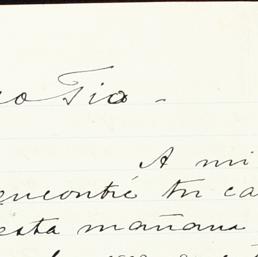 Tio -
A mi
encontré tu ca
esta mañana